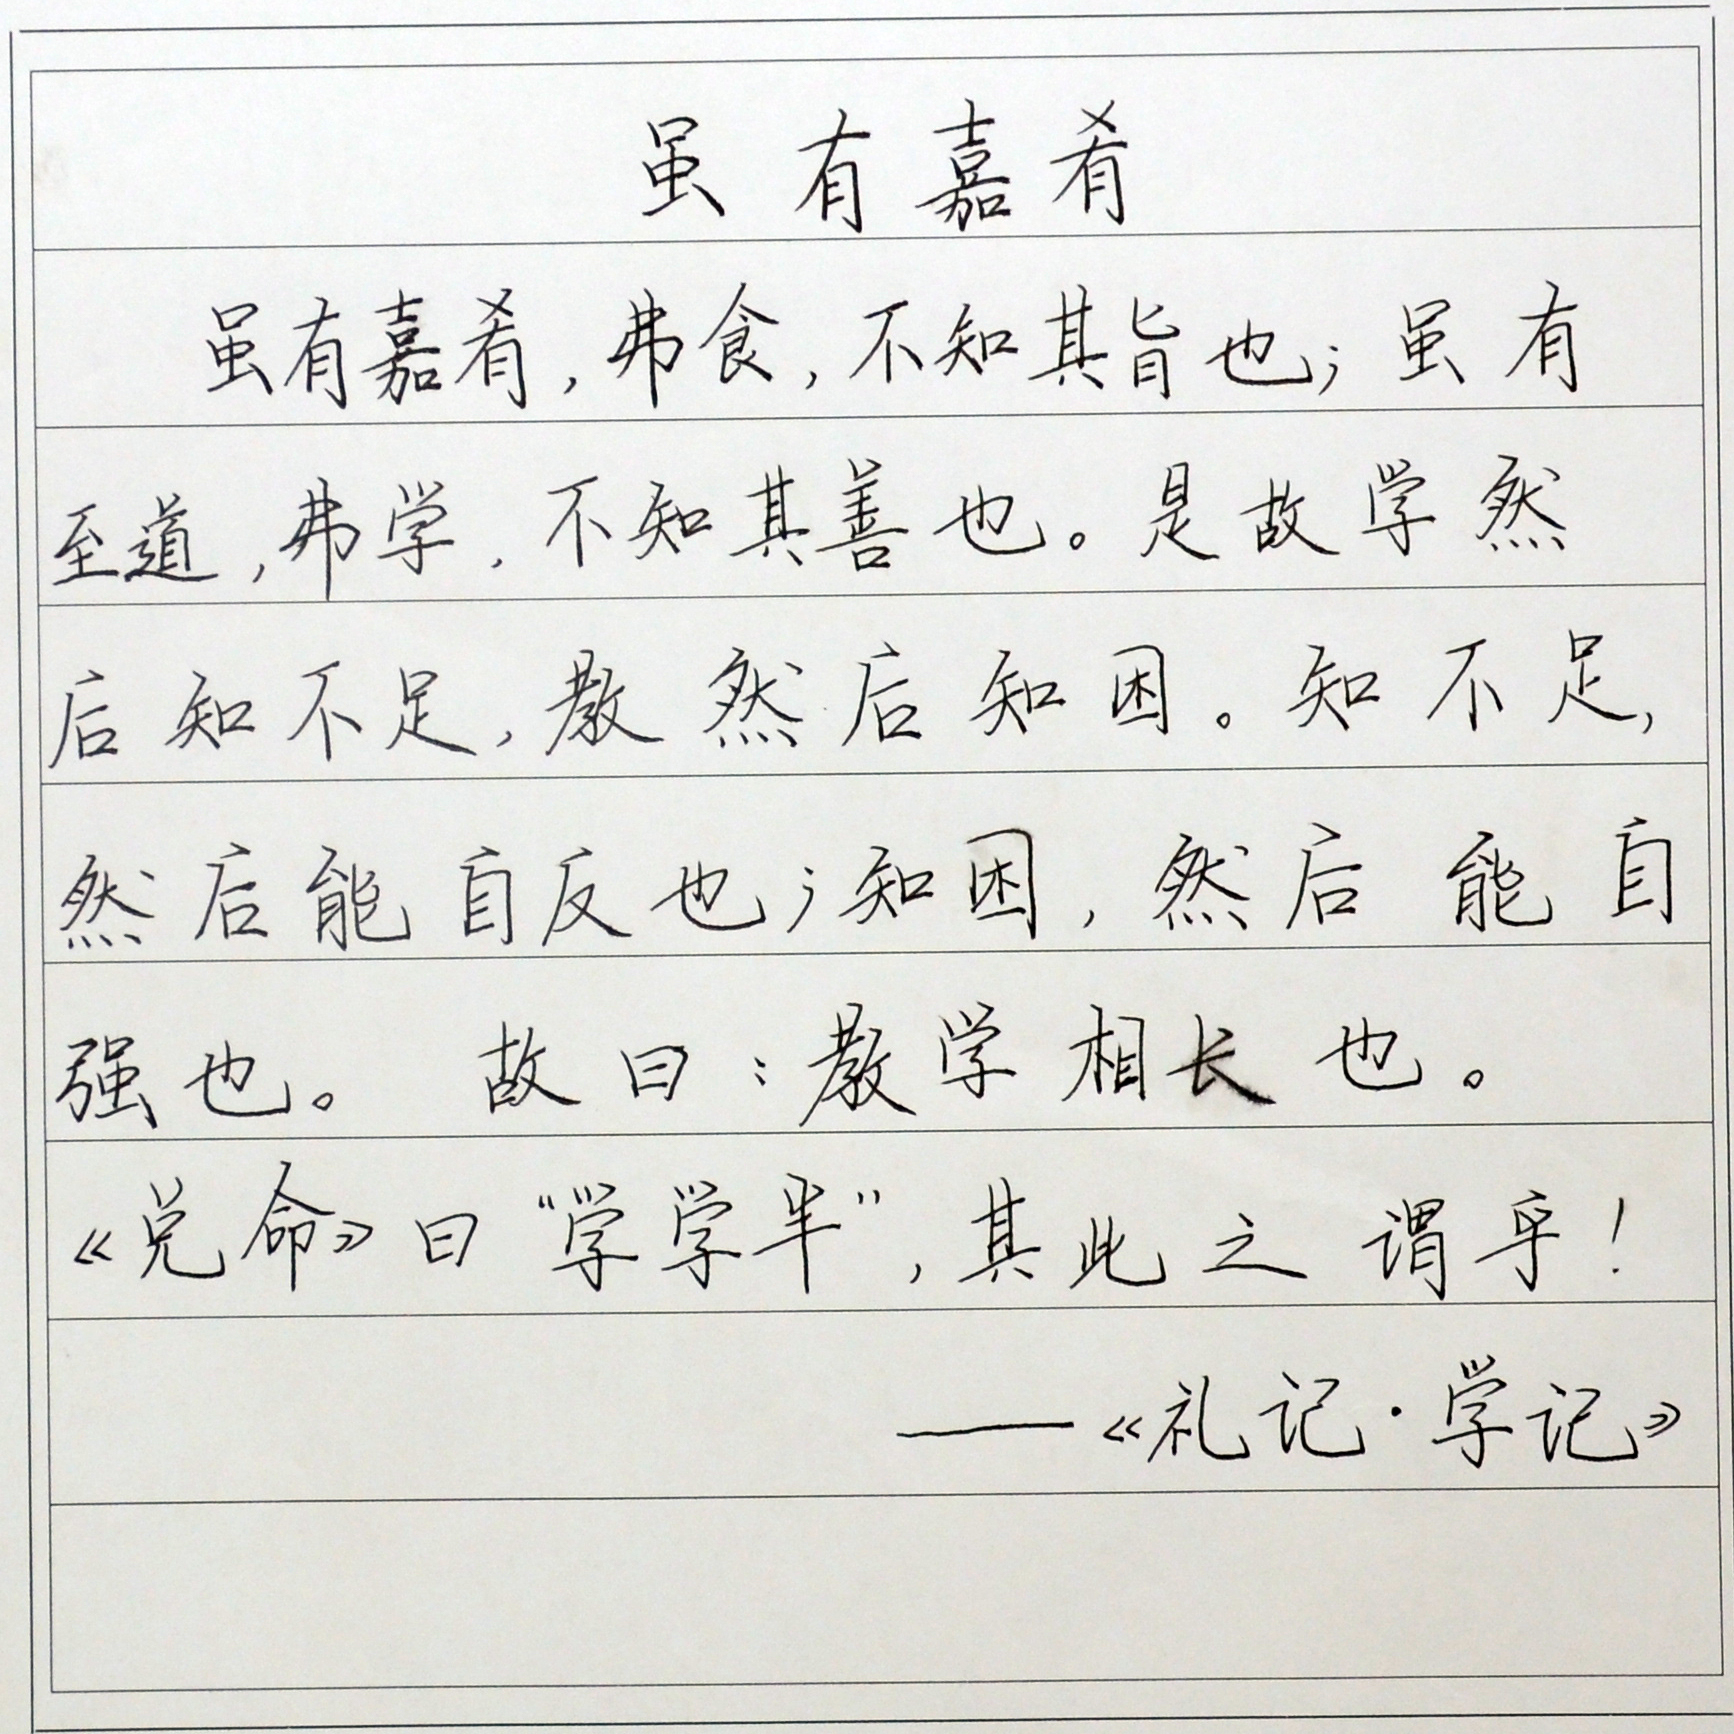 虽有嘉肴
虽有嘉肴，弗食，不知其旨也；虽有
至道，弗学，不知其善也。是故学然
后知不足，教然后知困。知不足，
然后能自反也；知困，然后能自
强也。故曰：教学相长也。
《兑命》曰“学学半”，其此之谓乎！
——《礼记·学记》